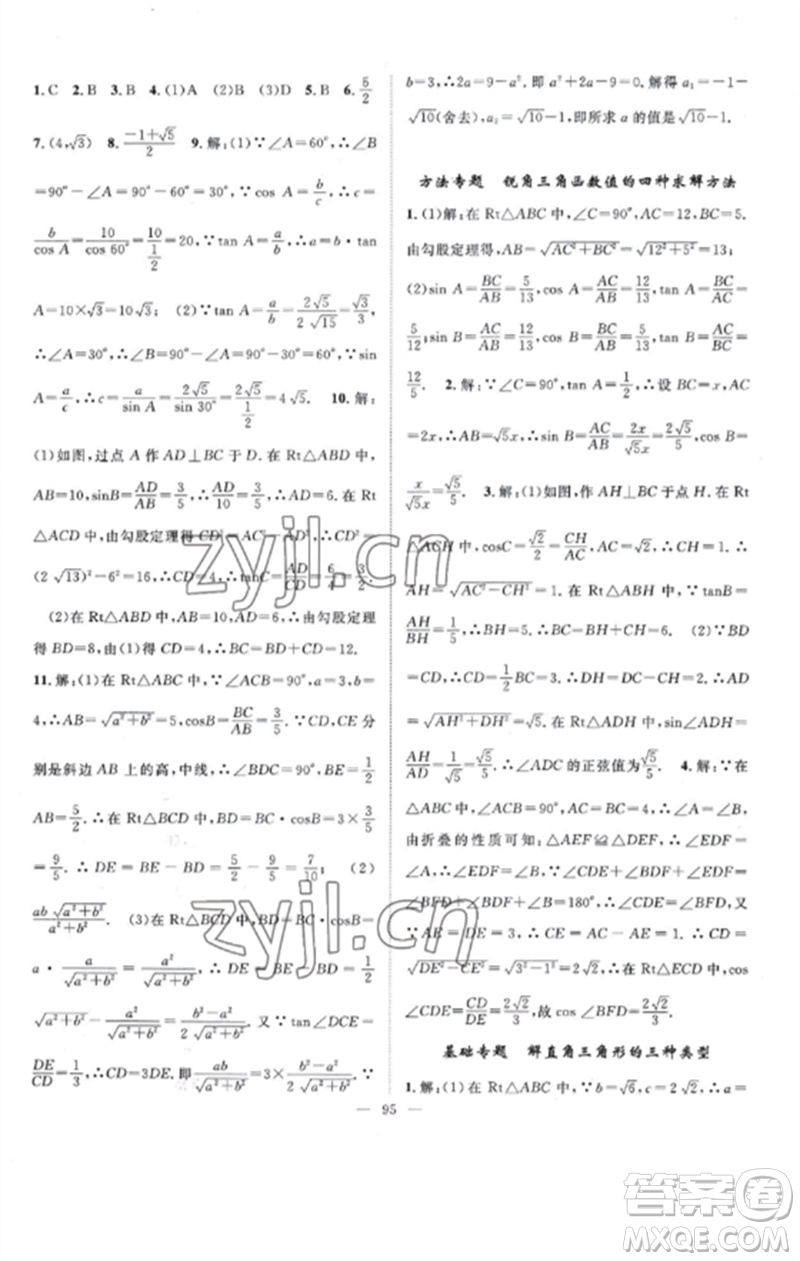 1.C 2.B 3.B 4.(1)A (2)B (3)D 5.B 6.5/2
7.(4,√3) 8.(-1+√5)/2 9.解:(1)∵∠A=60°,∴∠B
=90°-∠A=90°-60°=30°,∵cos A=b/c,∴c=
b/cos A=10/cos 60°=10/(1/2)=20,∵tan A=a/b,∴a=b·tan
A=10×√3=10√3. (2)∵tan A=a/b=2√5/2√15=√3/3,
∴∠A=30°,∴∠B=90°-∠A=90°-30°=60°,∵sin
A=a/c,∴c=a/sin A=2√5/sin 30°=2√5/(1/2)=4√5. 10.解:
(1)如图,过点A作AD⊥BC于D.在Rt△ABD中,
AB=10,sinB=AD/AB=3/5,∴AD/10=3/5,∴AD=6.在Rt
△ACD中,由勾股定理得CD²=AC²-AD²,∴CD²=
(2√13)²-6²=16,∴CD=4,∴tanC=AD/CD=6/4=3/2.
(2)在Rt△ABD中,AB=10,AD=6,∴由勾股定理
得BD=8,由(1)得CD=4,∴BC=BD+CD=12.
11.解:(1)在Rt△ABC中,∵∠ACB=90°,a=3,b=
4,∴AB=√(a²+b²)=5,cosB=BC/AB=3/5.∵CD,CE分
别是斜边AB上的高,中线,∴∠BDC=90°,BE=1/2
AB=5/2.∴在Rt△BCD中,BD=BC·cosB=3×3/5
=9/5,∴DE=BE-BD=5/2-9/5=7/10; (2)
ab√(a²+b²)/(a²+b²). (3)在Rt△BCD中,BD=BC·cosB=
a·a/√(a²+b²)=a²/√(a²+b²),∴DE=BE-BD=1/2
√(a²+b²)-a²/√(a²+b²)=(b²-a²)/2√(a²+b²).又∵tan∠DCE=
DE/CD=1/3,∴CD=3DE.即ab/√(a²+b²)=3×(b²-a²)/2√(a²+b²).∵
b=3,∴2a=9-a².即a²+2a-9=0.解得a₁=-1-
√10(舍去),a₂=√10-1,即所求a的值是√10-1.
方法专题 锐角三角函数值的四种求解方法
1.(1)解:在Rt△ABC中,∠C=90°,AC=12,BC=5.
由勾股定理得,AB=√(AC²+BC²)=√(12²+5²)=13;
(2)sin A=BC/AB=5/13,cos A=AC/AB=12/13,tan A=BC/AC=
5/12;sin B=AC/AB=12/13,cos B=BC/AB=5/13,tan B=AC/BC=
12/5. 2.解:∵∠C=90°,tan A=1/2,∴设BC=x,AC
=2x,∴AB=√5x,∴sin B=AC/AB=2x/√5x=2√5/5,cos B=
x/√5x=√5/5. 3.解:(1)如图,作AH⊥BC于点H.在Rt
△ACH中,cosC=√2/2=CH/AC,∵AC=√2,∴CH=1.∴
AH=√(AC²-CH²)=1.在Rt△ABH中,∵tanB=
AH/BH=1/5,∴BH=5,∴BC=BH+CH=6. (2)∵BD
=CD,∴CD=1/2BC=3.∴DH=DC-CH=2.∴AD
=√(AH²+DH²)=√5.在Rt△ADH中,sin∠ADH=
AH/AD=1/√5=√5/5.∴∠ADC的正弦值为√5/5. 4.解:∵在
△ABC中,∠ACB=90°,AC=BC=4,∴∠A=∠B,
由折叠的性质可知:△AEF≌△DEF,∴∠EDF=
∠A,∴∠EDF=∠B,∴∠CDE+∠BDF+∠EDF=
∠BFD+∠BDF+∠B=180°,∴∠CDE=∠BFD.又
∵AE=DE=3,∴CE=AC-AE=4-3=1,∴CD=
√(DE²-CE²)=√(3²-1²)=2√2,∴在Rt△ECD中,cos
∠CDE=CD/DE=2√2/3,故cos∠BFD=2√2/3.
基础专题 解直角三角形的三种类型
1.解:(1)在Rt△ABC中,∵b=√6,c=2√2,∴a=
95
zyjl.cn
zyjl.cn
答案卷
MXQE.COM